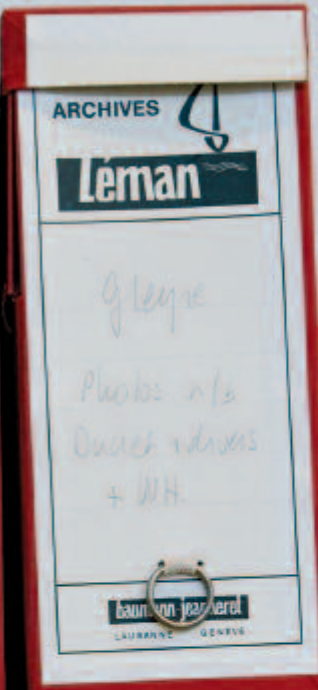 ARCHIVES
Léman
Gleyre
Photos n/b
+ WH.
baumann-jeanneret
LAUSANNE GENÈVE